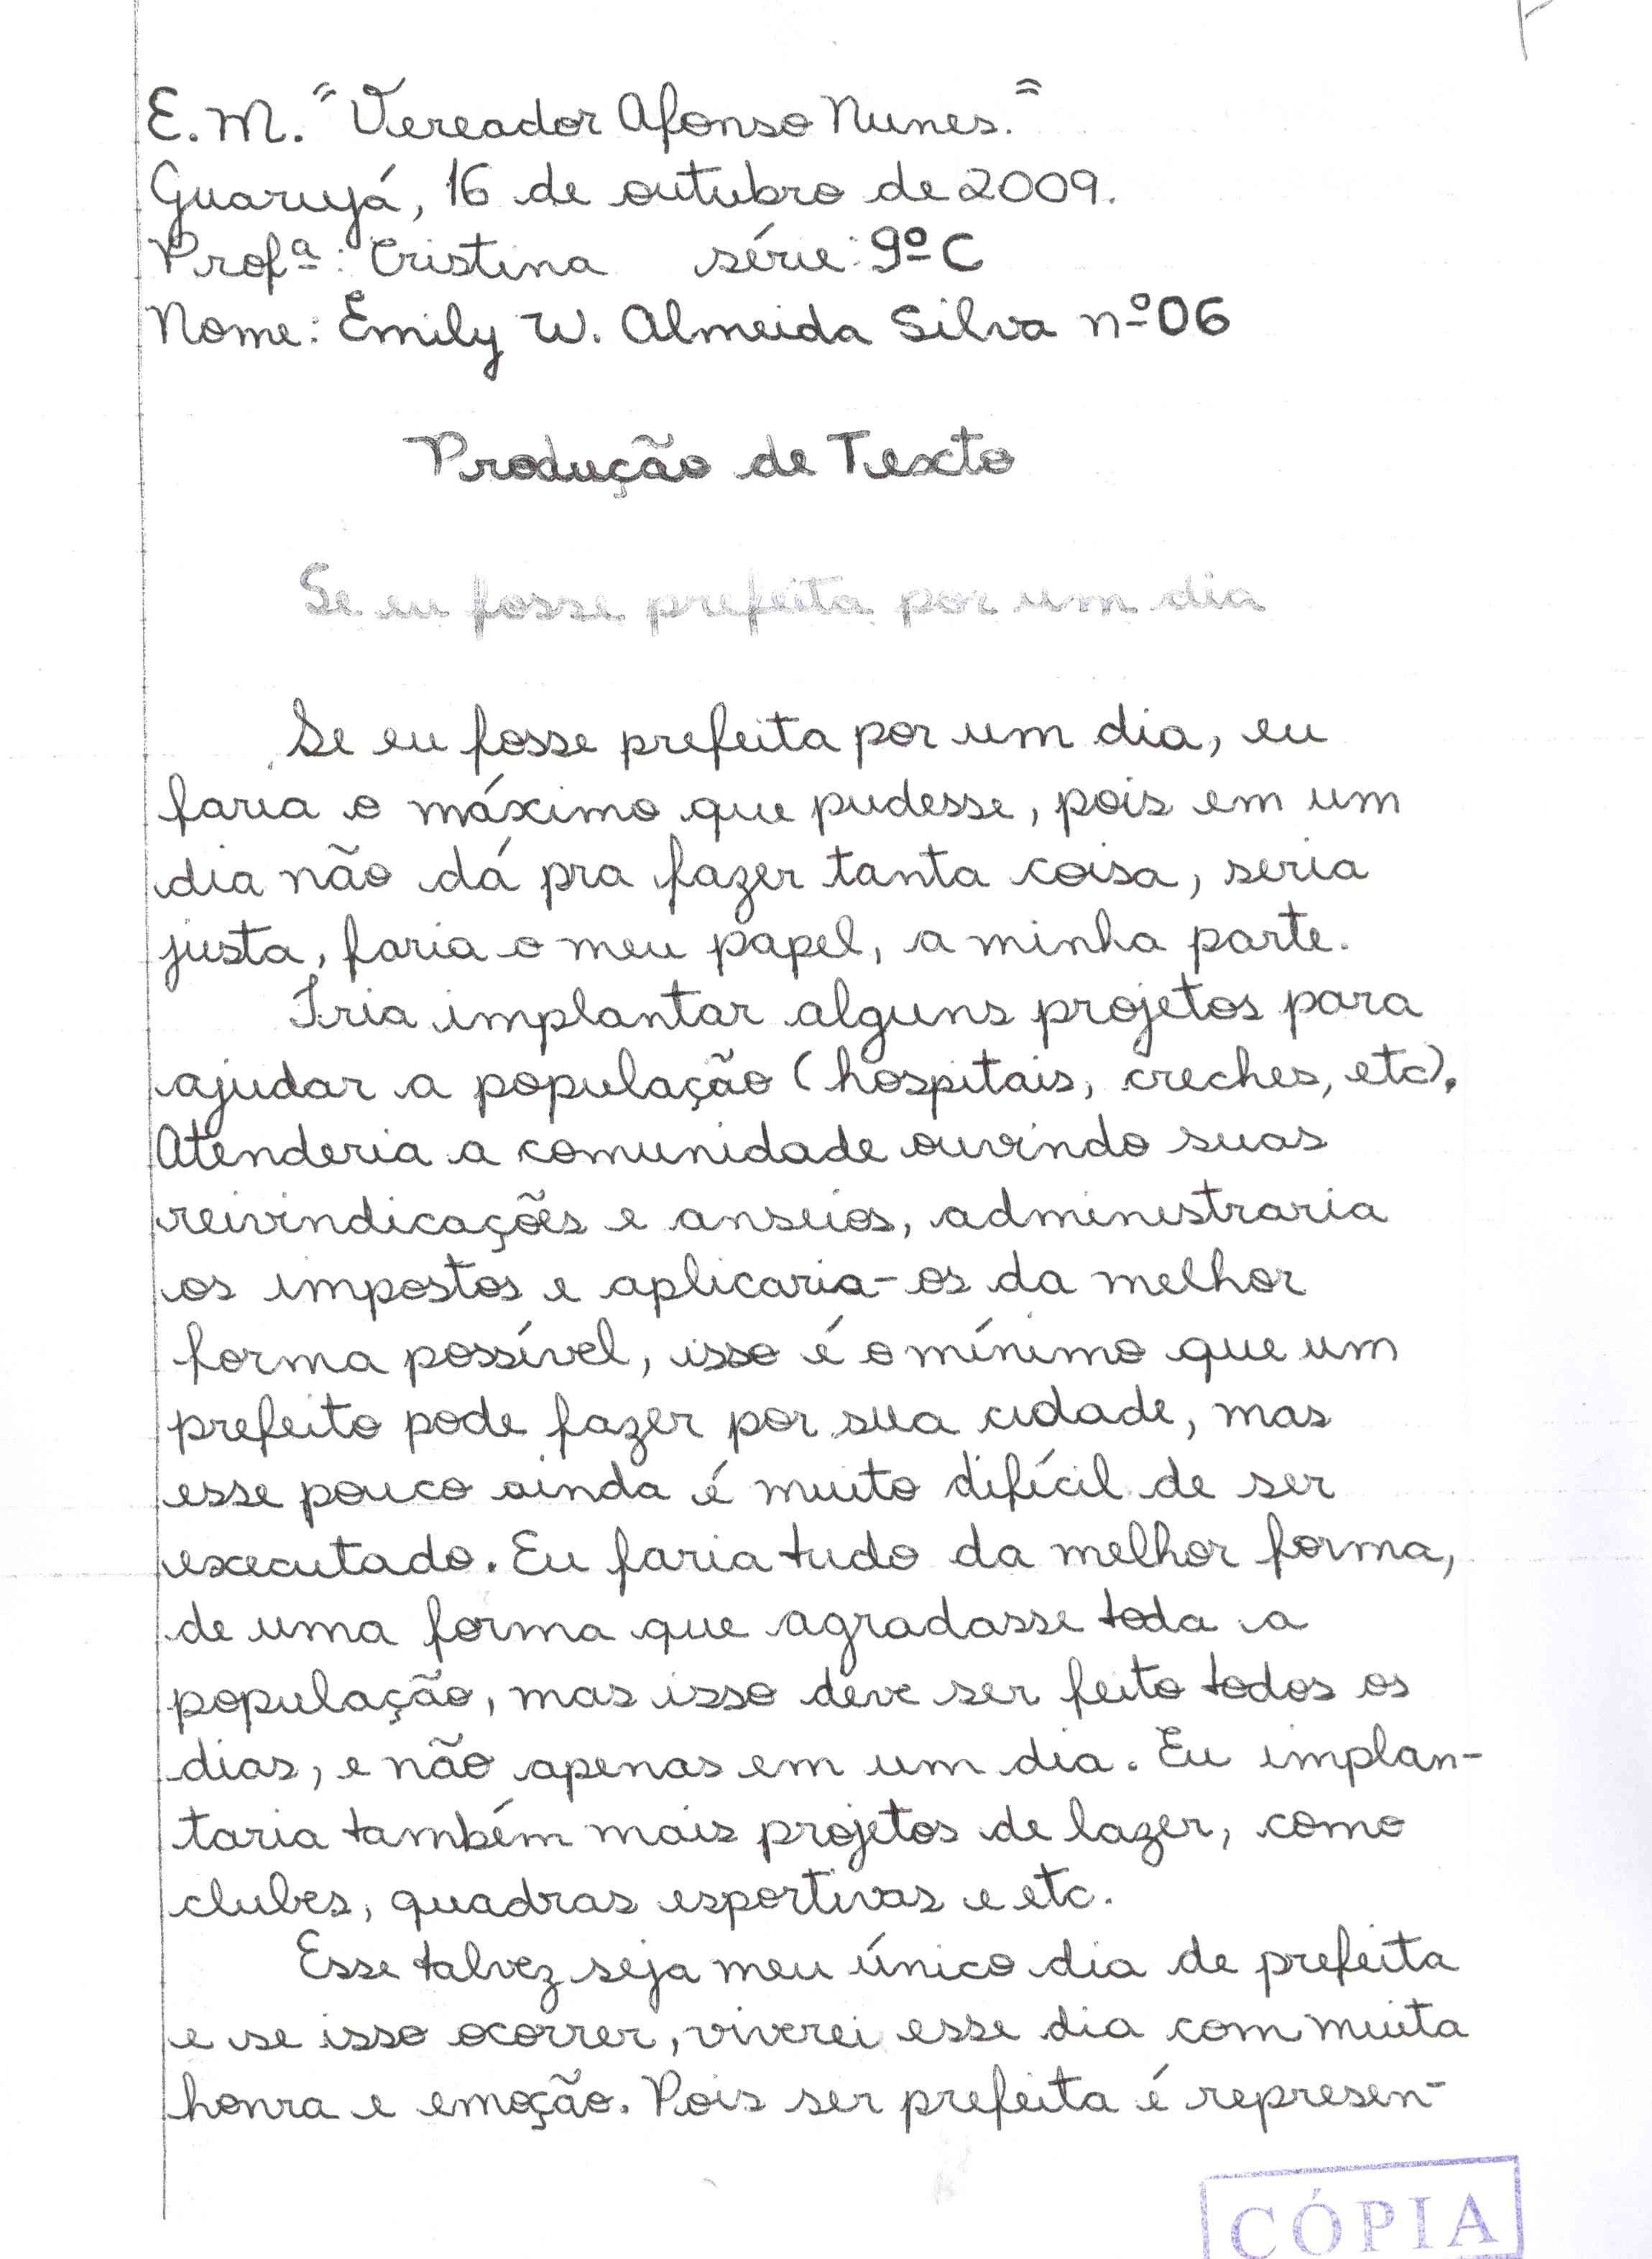 E.M. "Vereador Afonso Nunes."
Guarujá, 16 de outubro de 2009.
Profª: Cristina série: 9º C
Nome: Emily W. Almeida Silva nº 06
Produção de Texto
Se eu fosse prefeita por um dia
Se eu fosse prefeita por um dia, eu
faria o máximo que pudesse, pois em um
dia não dá pra fazer tanta coisa, seria
justa, faria o meu papel, a minha parte.
Iria implantar alguns projetos para
ajudar a população (hospitais, creches, etc).
Atenderia a comunidade ouvindo suas
reivindicações e anseios, administraria
os impostos e aplicaria-os da melhor
forma possível, isso é o mínimo que um
prefeito pode fazer por sua cidade, mas
esse pouco ainda é muito difícil de ser
executado. Eu faria tudo da melhor forma,
de uma forma que agradasse toda a
população, mas isso deve ser feito todos os
dias, e não apenas em um dia. Eu implan-
taria também mais projetos de lazer, como
clubes, quadras esportivas e etc.
Esse talvez seja meu único dia de prefeita
e se isso ocorrer, viverei esse dia com muita
honra e emoção. Pois ser prefeita é represen-
CÓPIA